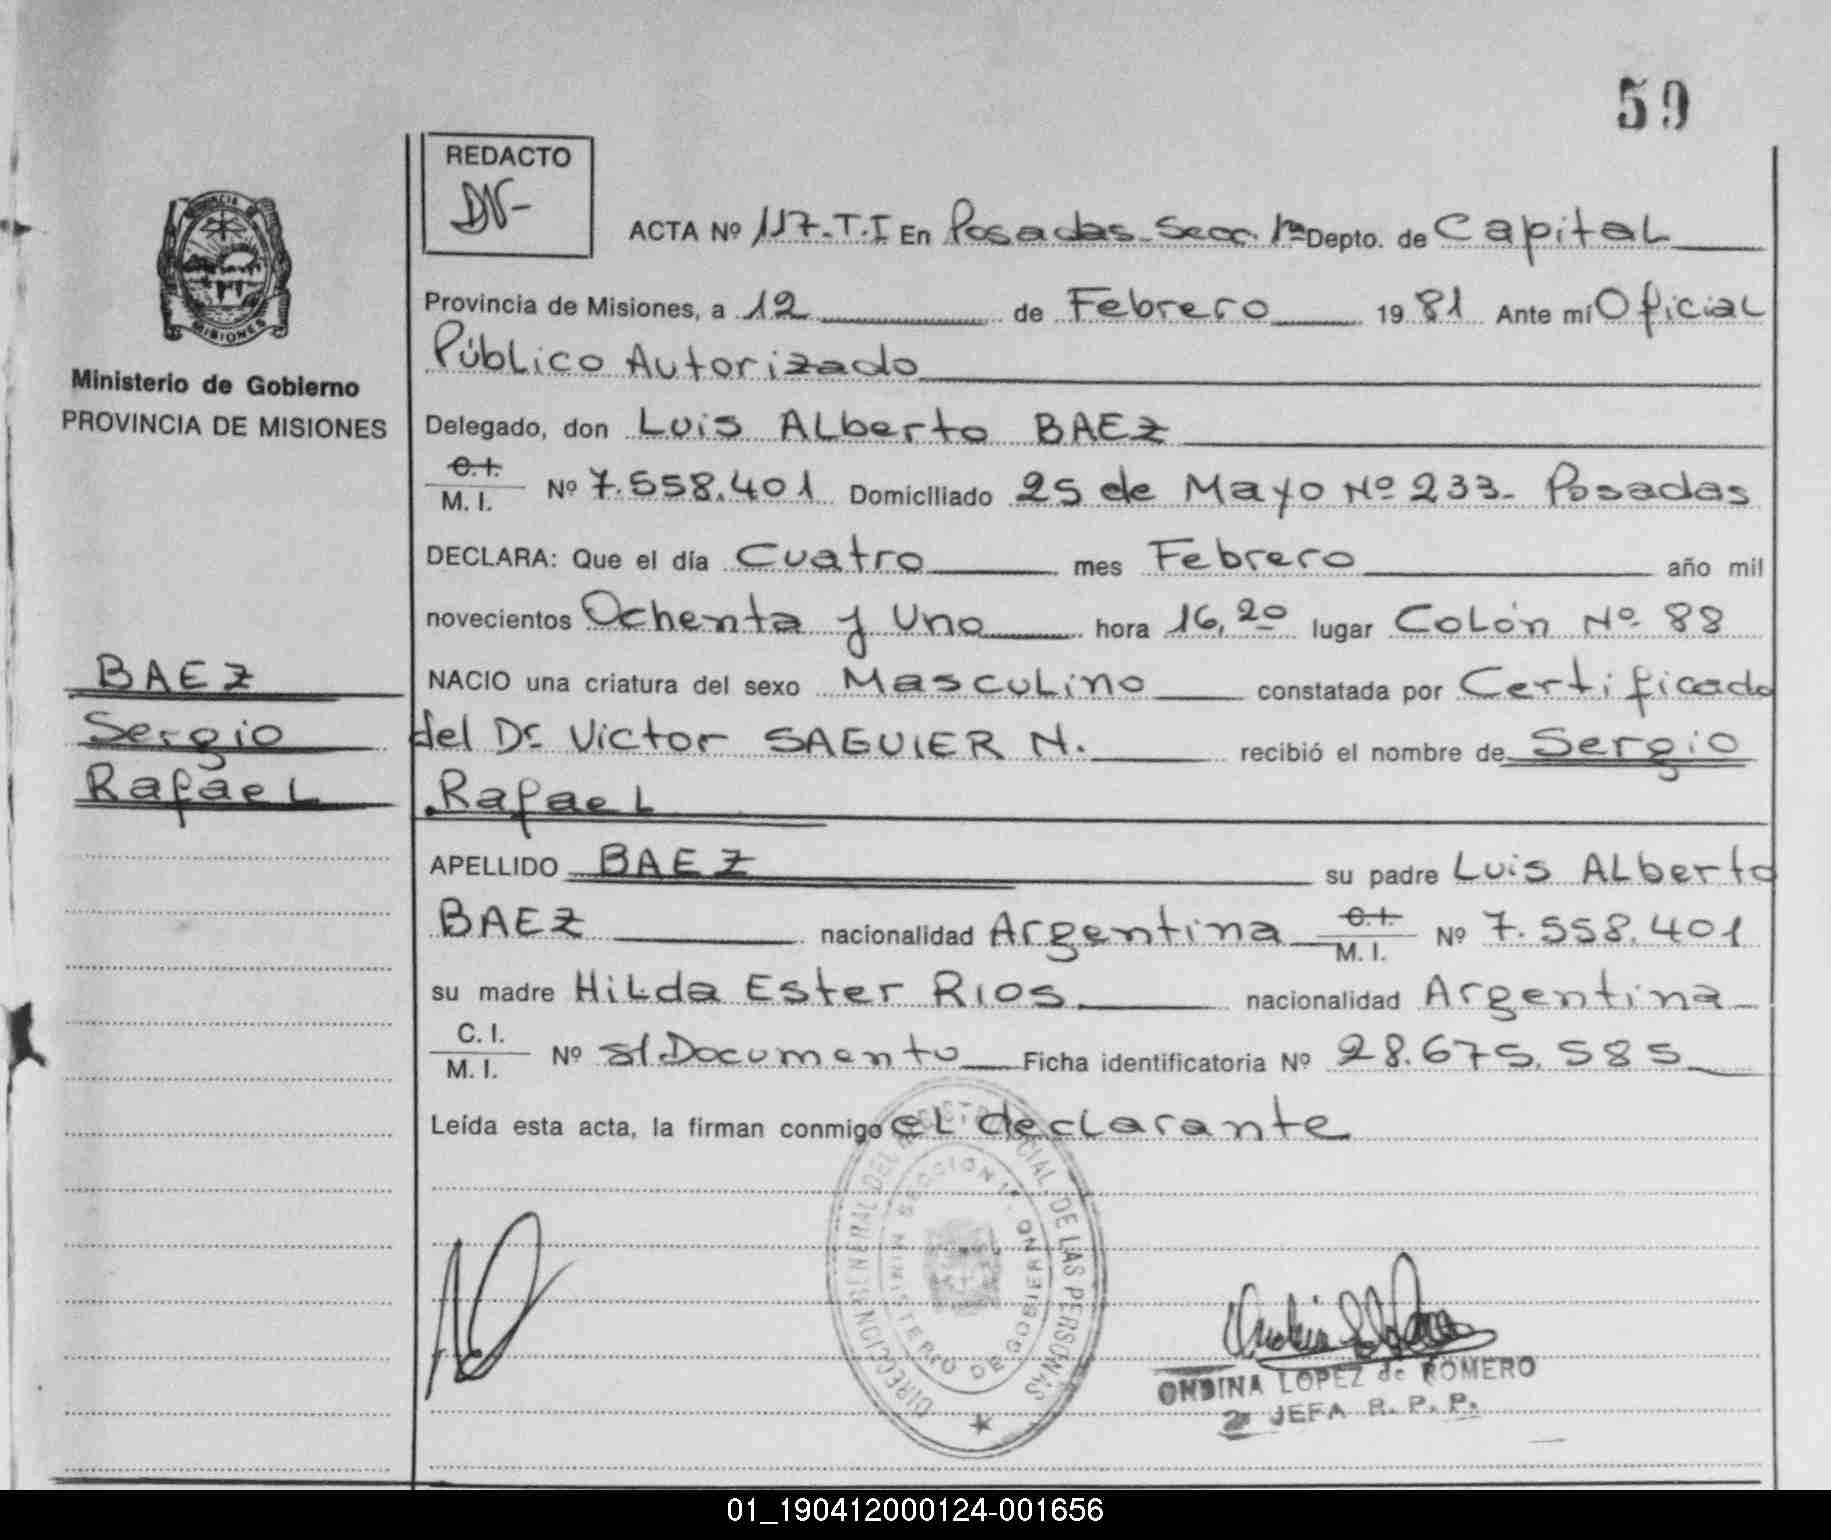 59
REDACTO
DN-
ACTA Nº 117-T.I En Posadas-Secc. 1ª Depto. de Capital
Provincia de Misiones, a 12 de Febrero 1981 Ante mí Oficial
Público Autorizado
Ministerio de Gobierno
PROVINCIA DE MISIONES
Delegado, don Luis Alberto BAEZ
C.I.
M. I. Nº 7.558.401 Domiciliado 25 de Mayo Nº 233- Posadas
DECLARA: Que el día Cuatro mes Febrero año mil
novecientos Ochenta y Uno hora 16,20 lugar Colón Nº 88
BAEZ
Sergio
Rafael
NACIO una criatura del sexo Masculino constatada por Certificado
del Dr Victor SAGUIER N. recibió el nombre de Sergio
Rafael
APELLIDO BAEZ su padre Luis Alberto
BAEZ nacionalidad Argentina C.I. M. I. Nº 7.558.401
su madre Hilda Ester RIOS nacionalidad Argentina
C. I.
M. I. Nº s/Documento Ficha identificatoria Nº 28.675.585
Leída esta acta, la firman conmigo el declarante
DIRECCION GENERAL DEL REGISTRO PROVINCIAL DE LAS PERSONAS
SECCION 1ª
MINISTERIO DE GOBIERNO
ONDINA LOPEZ de ROMERO
2ª JEFA R. P. P.
PROVINCIA DE
MISIONES
01_190412000124-001656